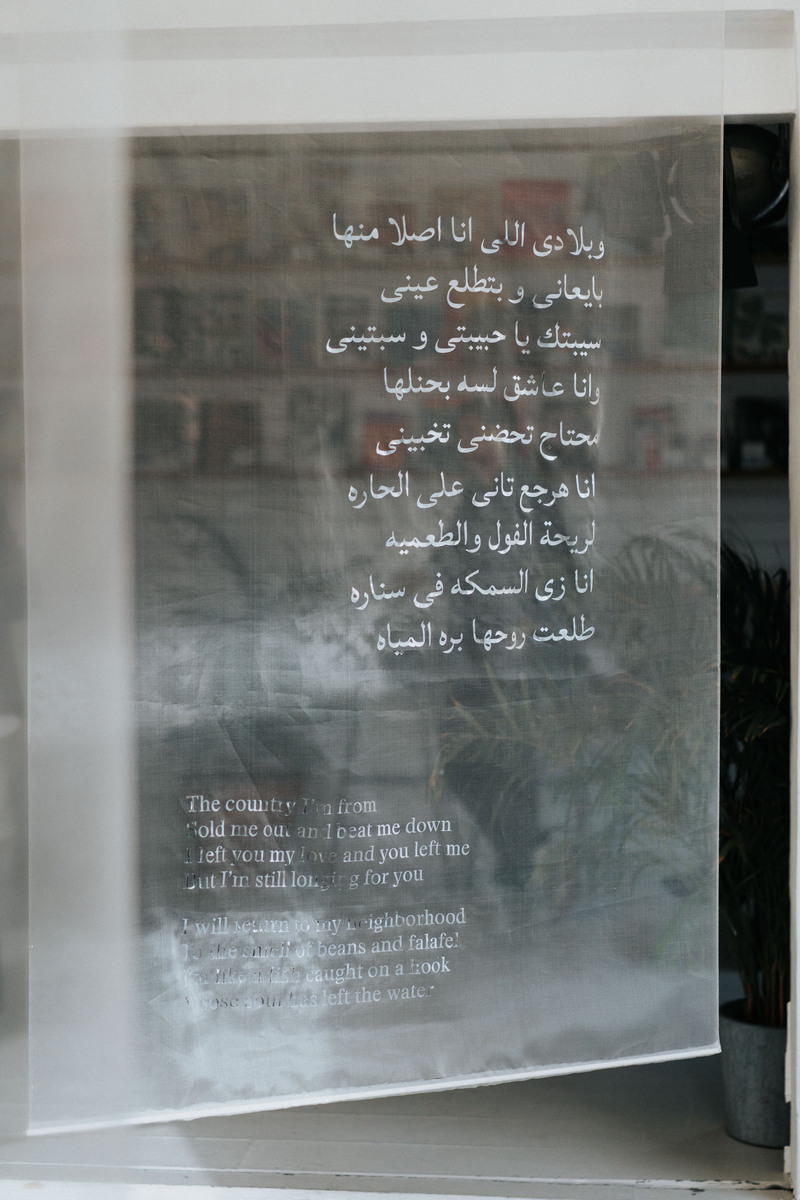 وبلادى اللى انا اصلا منها
بايعانى و بتطلع عينى
سيبتك يا حبيبتى و سبتينى
وانا عاشق لسه بحنلها
محتاج تحضنى تخبينى
انا هرجع تانى على الحاره
لريحة الفول والطعميه
انا زى السمكه فى سناره
طلعت روحها بره المياه
The country I'm from
Sold me out and beat me down
I left you my love and you left me
But I'm still longing for you
I will return to my neighborhood
To the smell of beans and falafel
I'm like a fish caught on a hook
Whose soul has left the water